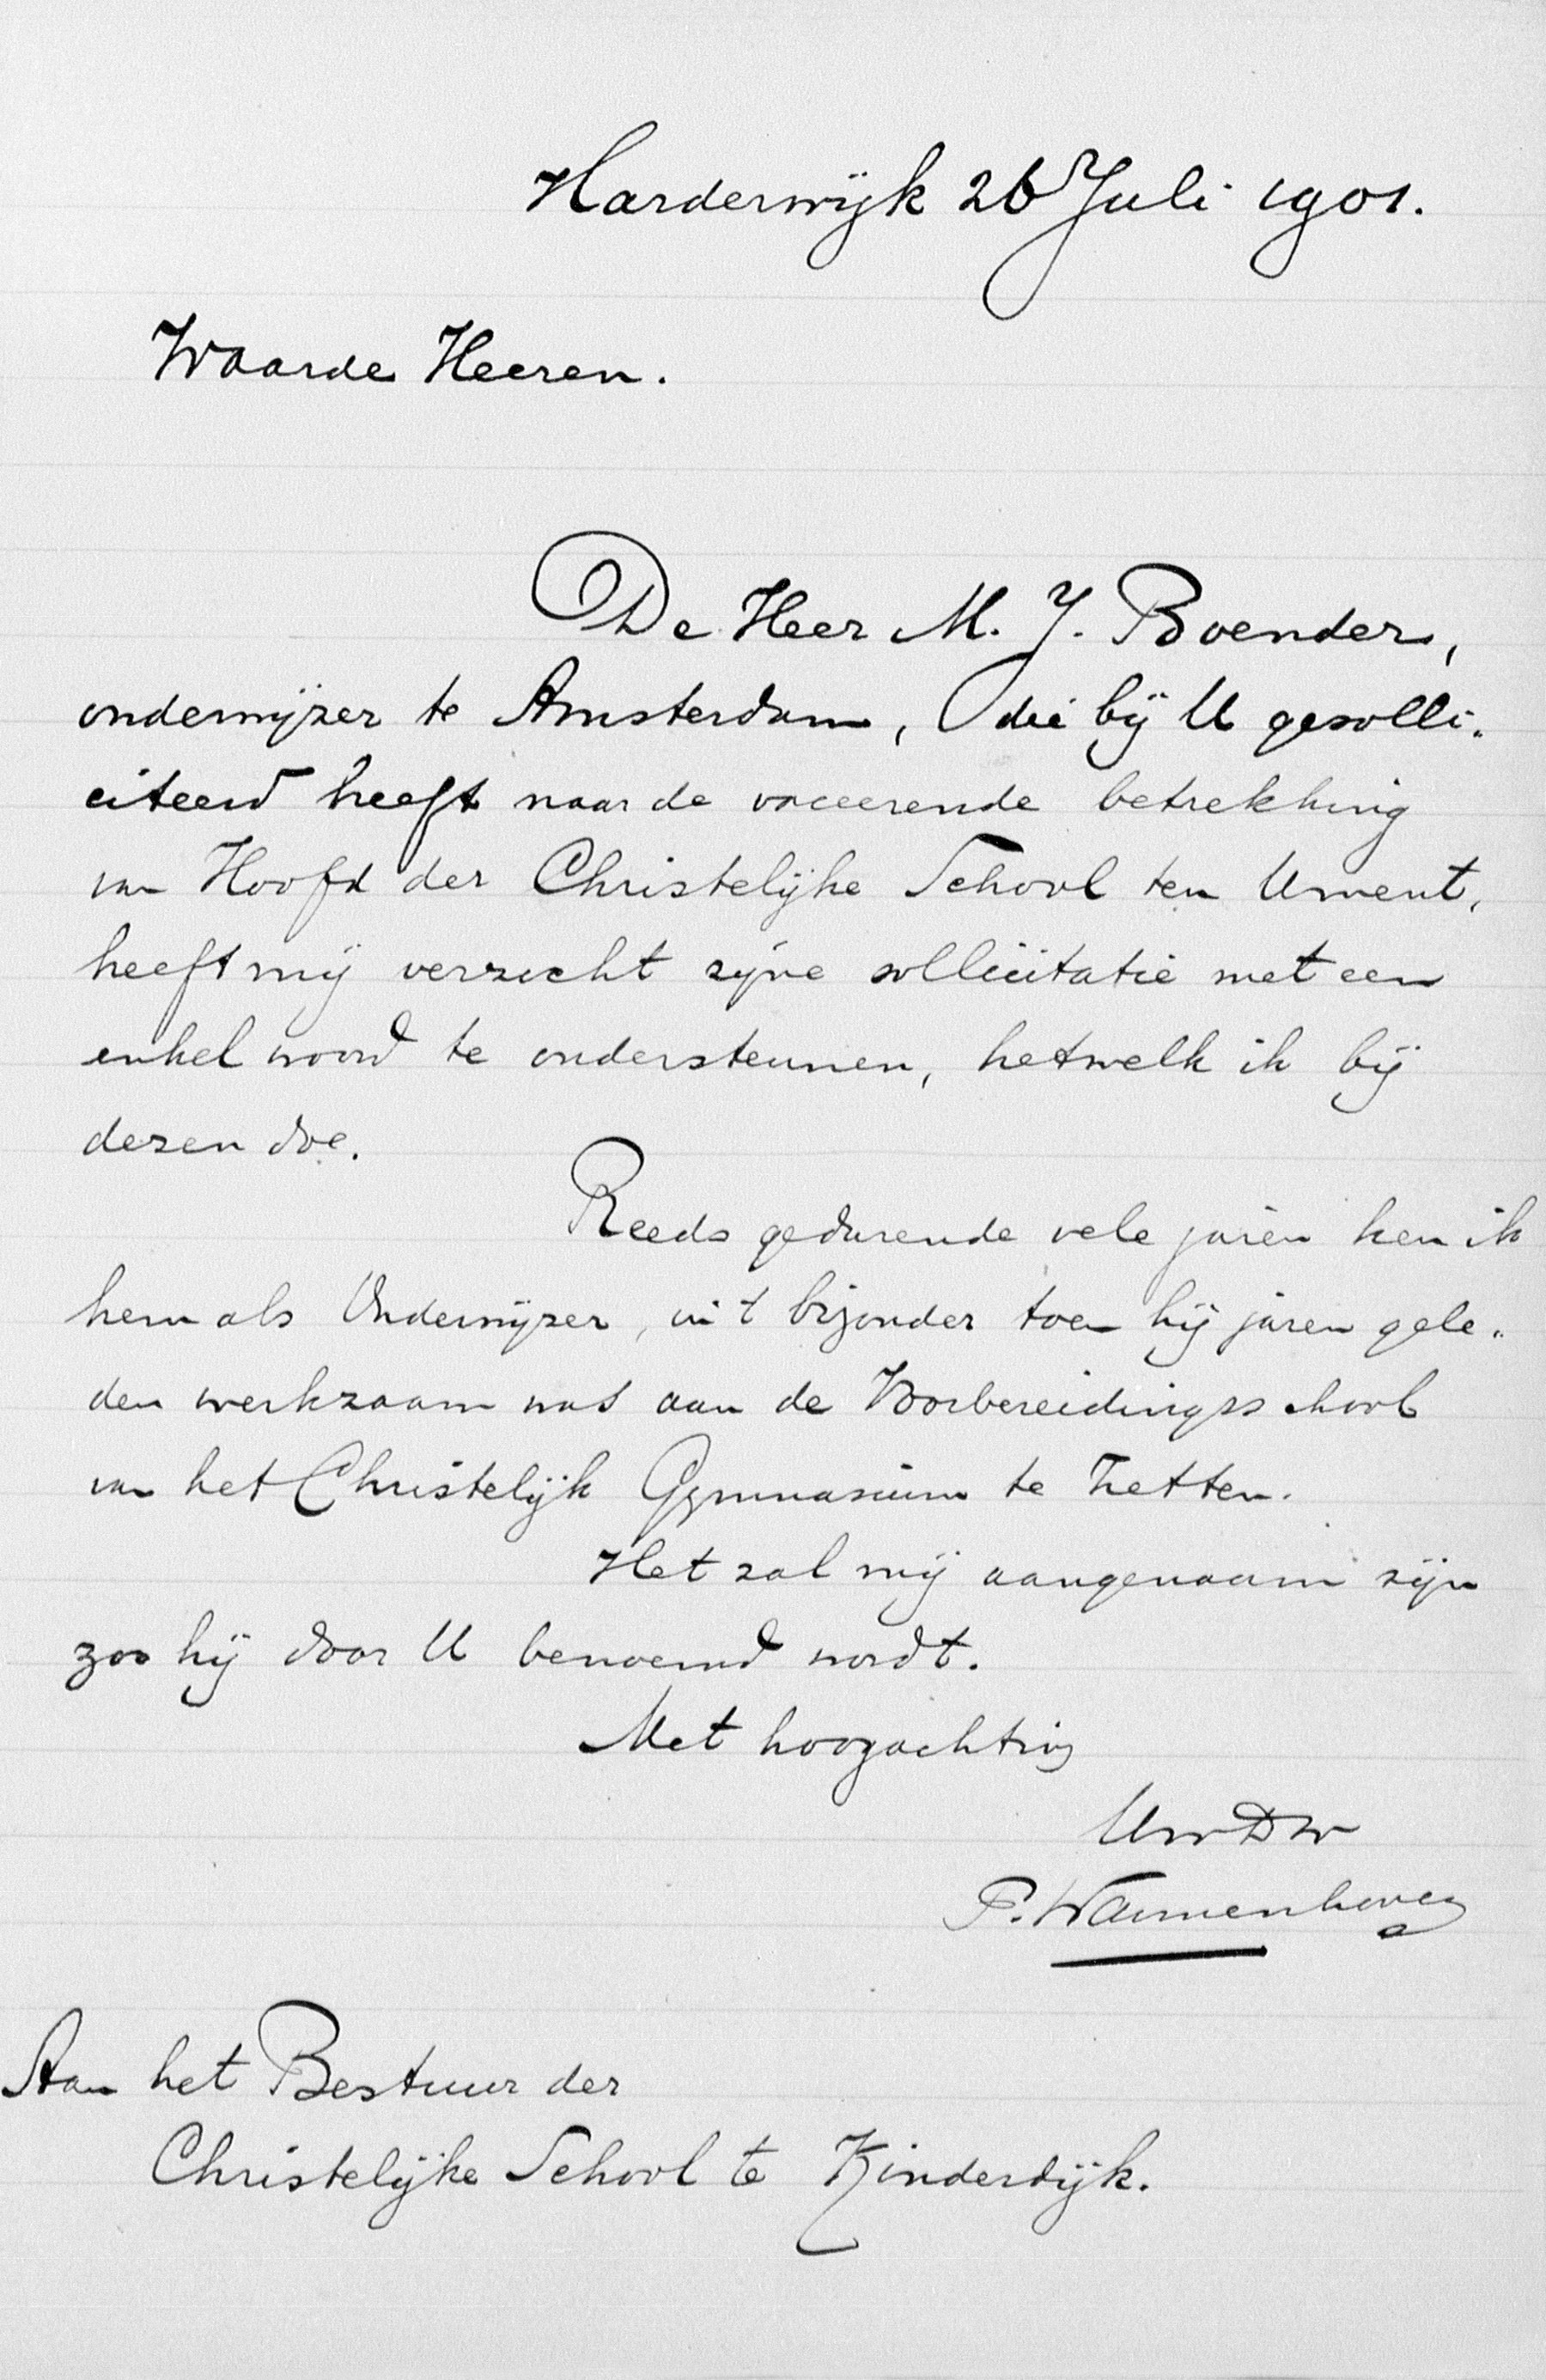 Harderwijk 26 Juli 1901.
Waarde Heeren.
De Heer M. J. Boender,
onderwijzer te Amsterdam, die bij U gesolli-
citeerd heeft naar de vaceerende betrekking
van Hoofd der Christelijke School ten Uwent,
heeft mij verzocht zijne sollicitatie met een
enkel woord te ondersteunen, hetwelk ik bij
dezen doe.
Reeds gedurende vele jaren ken ik
hem als Onderwijzer, in 't bijzonder toen hij jaren gele-
den werkzaam was aan de Voorbereidingsschool
van het Christelijk Gymnasium te Zetten.
Het zal mij aangenaam zijn
zoo hij door U benoemd wordt.
Met hoogachting
Uw DW
P.
Aan het Bestuur der
Christelijke School te Kinderdijk.